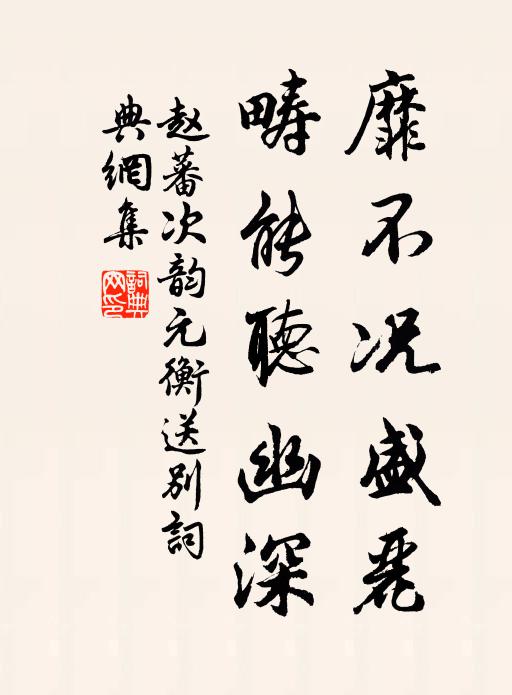 靡不况盛丽
畴能聽幽深
赵蕃次韵元衡送别詞
典網集
詞典網印